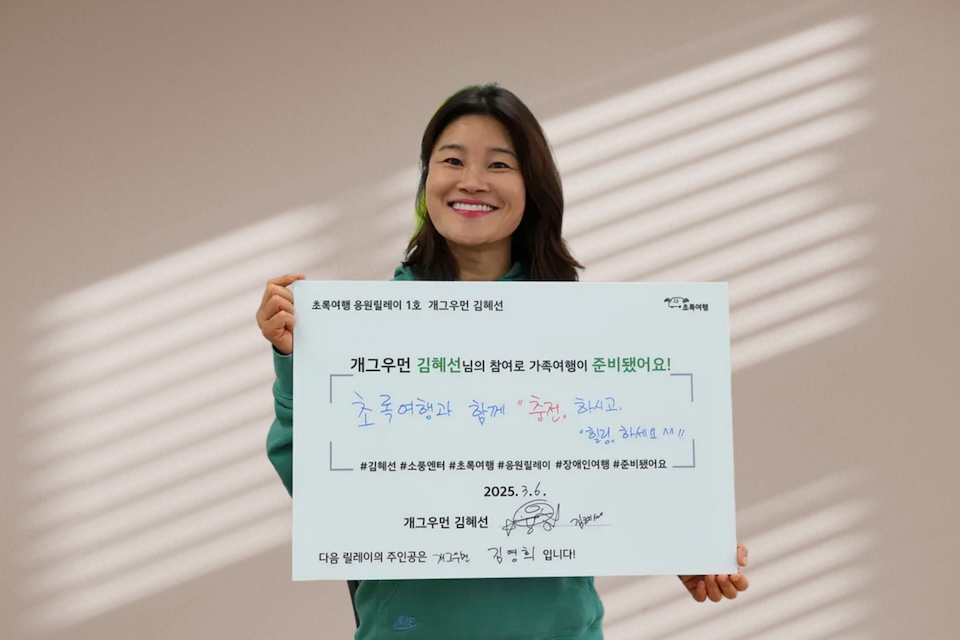 초록여행 응원릴레이 1호 개그우먼 김혜선
초록여행
개그우먼 김혜선님의 참여로 가족여행이 준비됐어요!
초록여행과 함께 "충전" 하시고,
"힐링" 하세요 ^^!!
#김혜선 #소풍엔터 #초록여행 #응원릴레이 #장애인여행 #준비됐어요
2025. 3. 6.
개그우먼 김혜선 김혜선
다음 릴레이의 주인공은 개그우먼 김영희 입니다!
NIKE